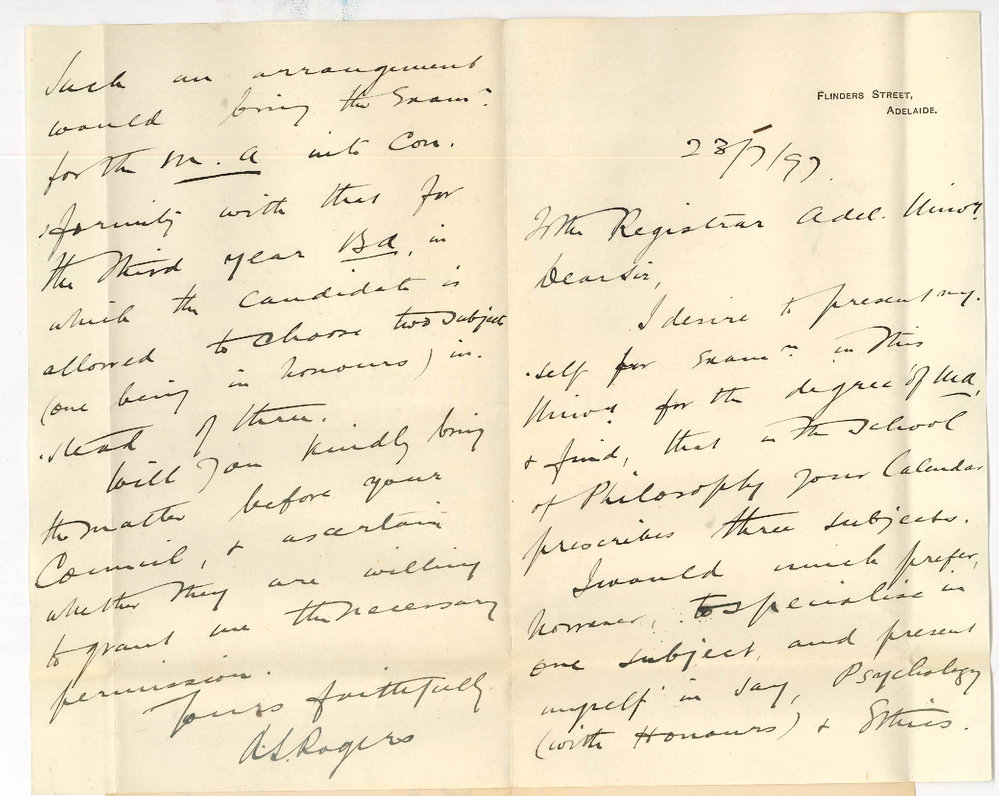 FLINDERS STREET,
ADELAIDE.
23/7/97.
To the Registrar Adel. Univy.
Dear Sir,
I desire to present my-
-self for Examn. in this
Univy. for the degree of MA,
& find, that in the School
of Philosophy your Calendar
prescribes three subjects.
I would much prefer,
however, to specialise in
one subject, and present
myself in say, Psychology
(with Honours) & Ethics.
Such an arrangement
would bring the Examn.
for the M. A into Con-
-formity with that for
the Third year BA, in
which the Candidate is
allowed to choose two subject
(one being in honours) in-
-stead of three.
Will you kindly bring
the matter before your
Council, & ascertain
whether they are willing
to grant me the necessary
permission.
Yours faithfully
A S Rogers